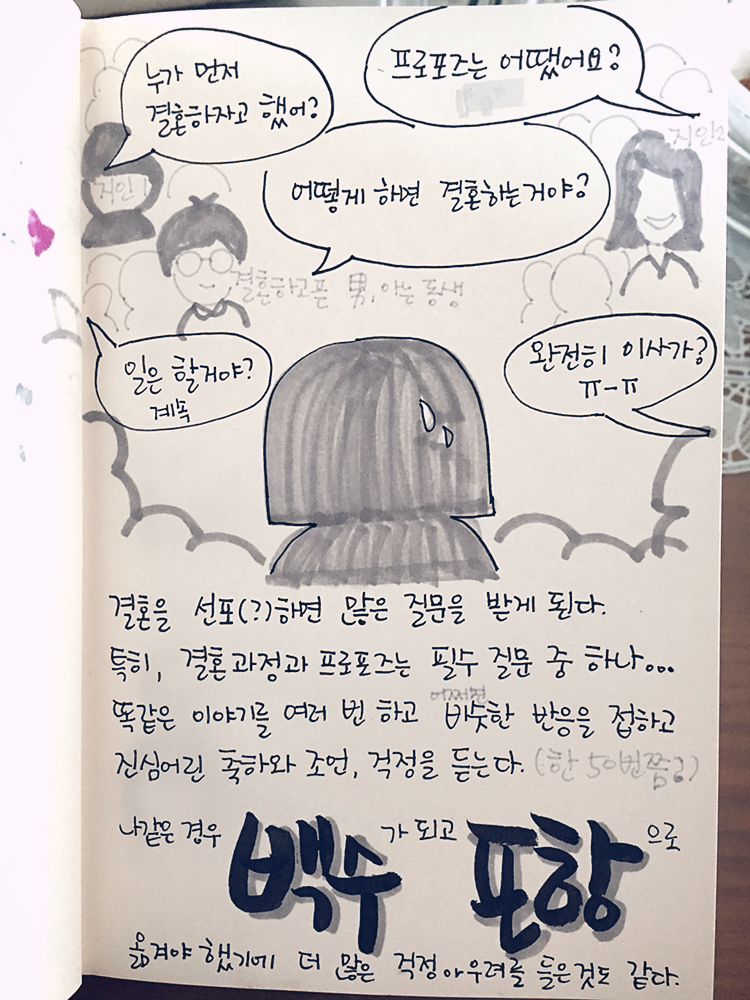 누가 먼저
결혼하자고 했어?
프로포즈는 어땠어요?
지인1
지인2
어떻게 하면 결혼하는거야?
결혼하고픈 男, 아는 동생
일은 할거야?
계속
완전히 이사가?
ㅠ-ㅠ
결혼을 선포(?)하면 많은 질문을 받게 된다.
특히, 결혼과정과 프로포즈는 필수 질문 중 하나...
똑같은 이야기를 여러 번 하고 어쩌면 비슷한 반응을 접하고
진심어린 축하와 조언, 걱정을 듣는다. (한 50번쯤?)
나같은 경우 백수가 되고 포항으로
옮겨야 했기에 더 많은 걱정아우려를 들은것도 같다.